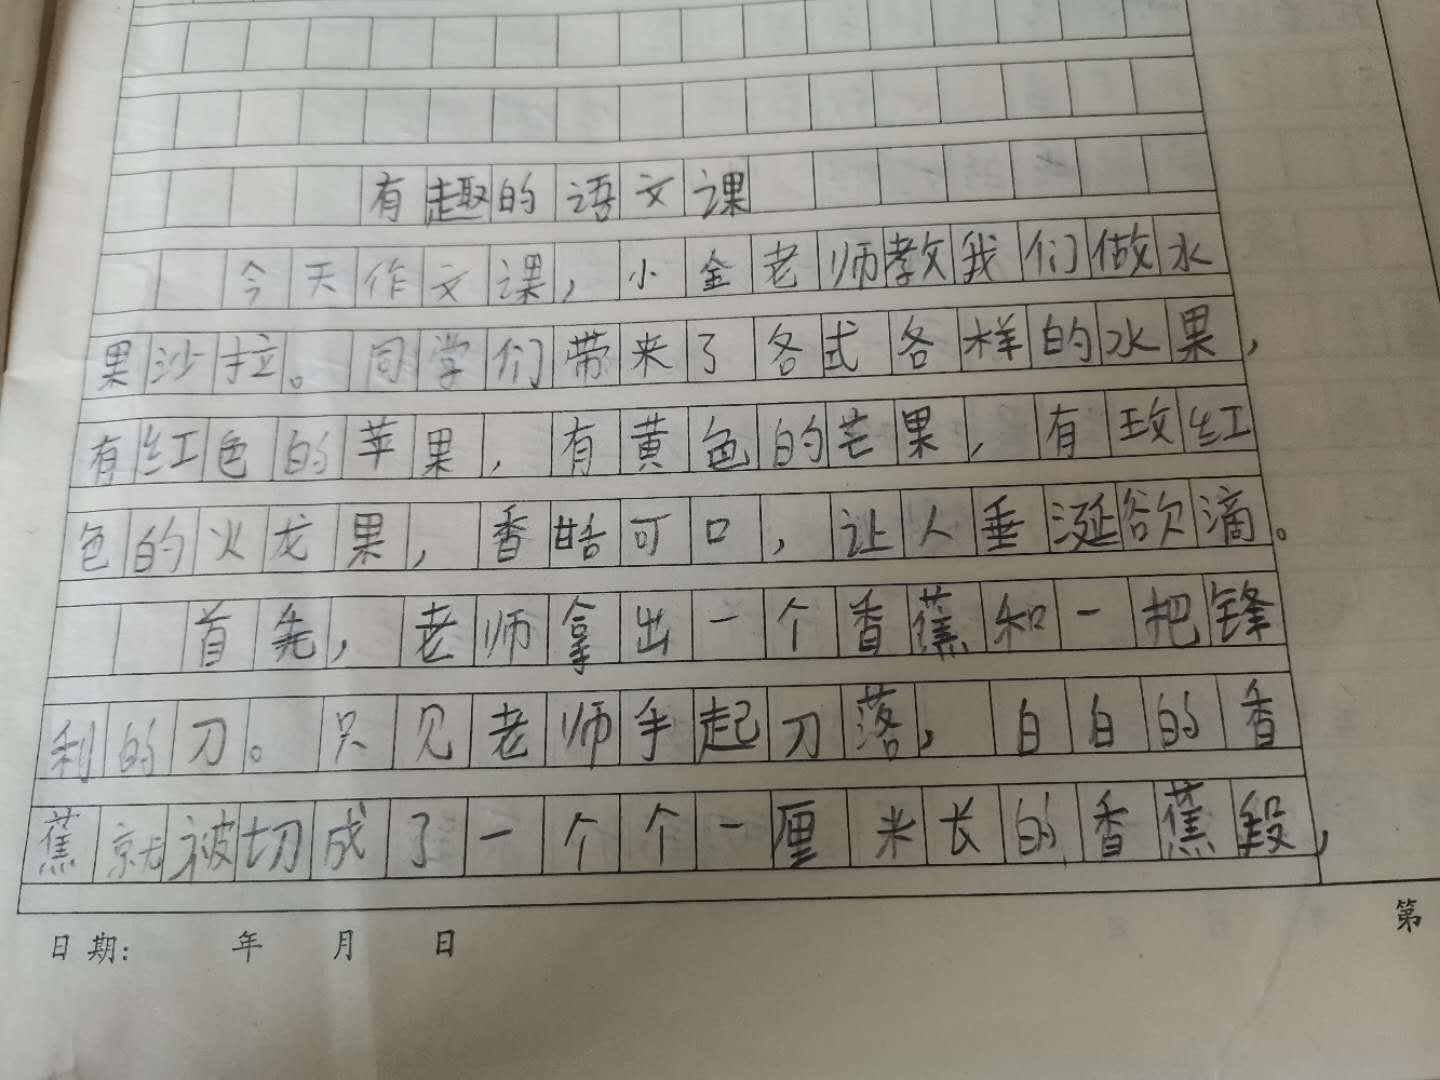 有趣的语文课
今天作文课，小金老师教我们做水
果沙拉。同学们带来了各式各样的水果，
有红色的苹果，有黄色的芒果，有玫红
色的火龙果，香甜可口，让人垂涎欲滴。
首先，老师拿出一个香蕉和一把锋
利的刀。只见老师手起刀落，白白的香
蕉就被切成了一个个一厘米长的香蕉段，
日期： 年 月 日
第